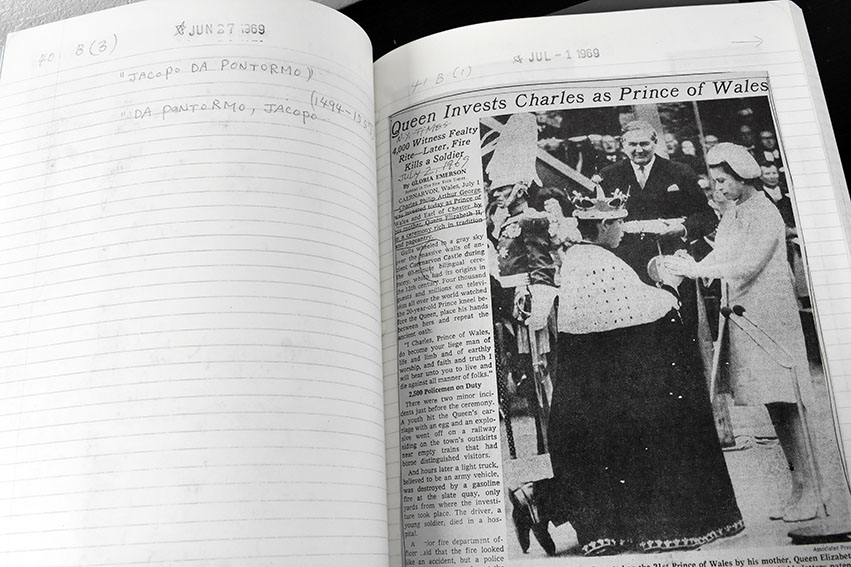 40. B(3)
JUN 27 1969
"JACOPO DA PONTORMO"
(1494-155
DA PONTORMO, JACOPO
JUL - 1 1969
41 B (1)
Queen Invests Charles as Prince of Wales
N.Y. TIMES
4,000 Witness Fealty
Rite—Later, Fire
Kills a Soldier
JULY 2, 1969
By GLORIA EMERSON
Special to The New York Times
CAERNARVON, Wales, July 1
—Charles Philip Arthur George
was invested today as Prince of
Wales and Earl of Chester by
his mother, Queen Elizabeth II,
in a ceremony rich in tradition
and pageantry.
Gulls wheeled in a gray sky
over the massive walls of an-
cient Caernarvon Castle during
the 80-minute bilingual cere-
mony, which had its origins in
the 13th century. Four thousand
guests and millions on televi-
sion all over the world watched
the 20-year-old Prince kneel be-
fore the Queen, place his hands
between hers and repeat the
ancient oath:
"I Charles, Prince of Wales,
do become your liege man of
life and limb and of earthly
worship, and faith and truth I
will bear unto you to live and
die against all manner of folks."
2,500 Policemen on Duty
There were two minor inci-
dents just before the ceremony.
A youth hit the Queen's car-
riage with an egg and an explo-
sion went off on a railway
siding on the town's outskirts
near empty trains that had
borne distinguished visitors.
And hours later a light truck,
believed to be an army vehicle,
was destroyed by a gasoline
fire at the slate quay, only
yards from where the investi-
ture took place. The driver, a
young soldier, died in a hos-
pital.
A ior fire department of-
ficer said that the fire looked
like an accident, but a police
Associated Pre
the 21st Prince of Wales by his mother, Queen Elizabet